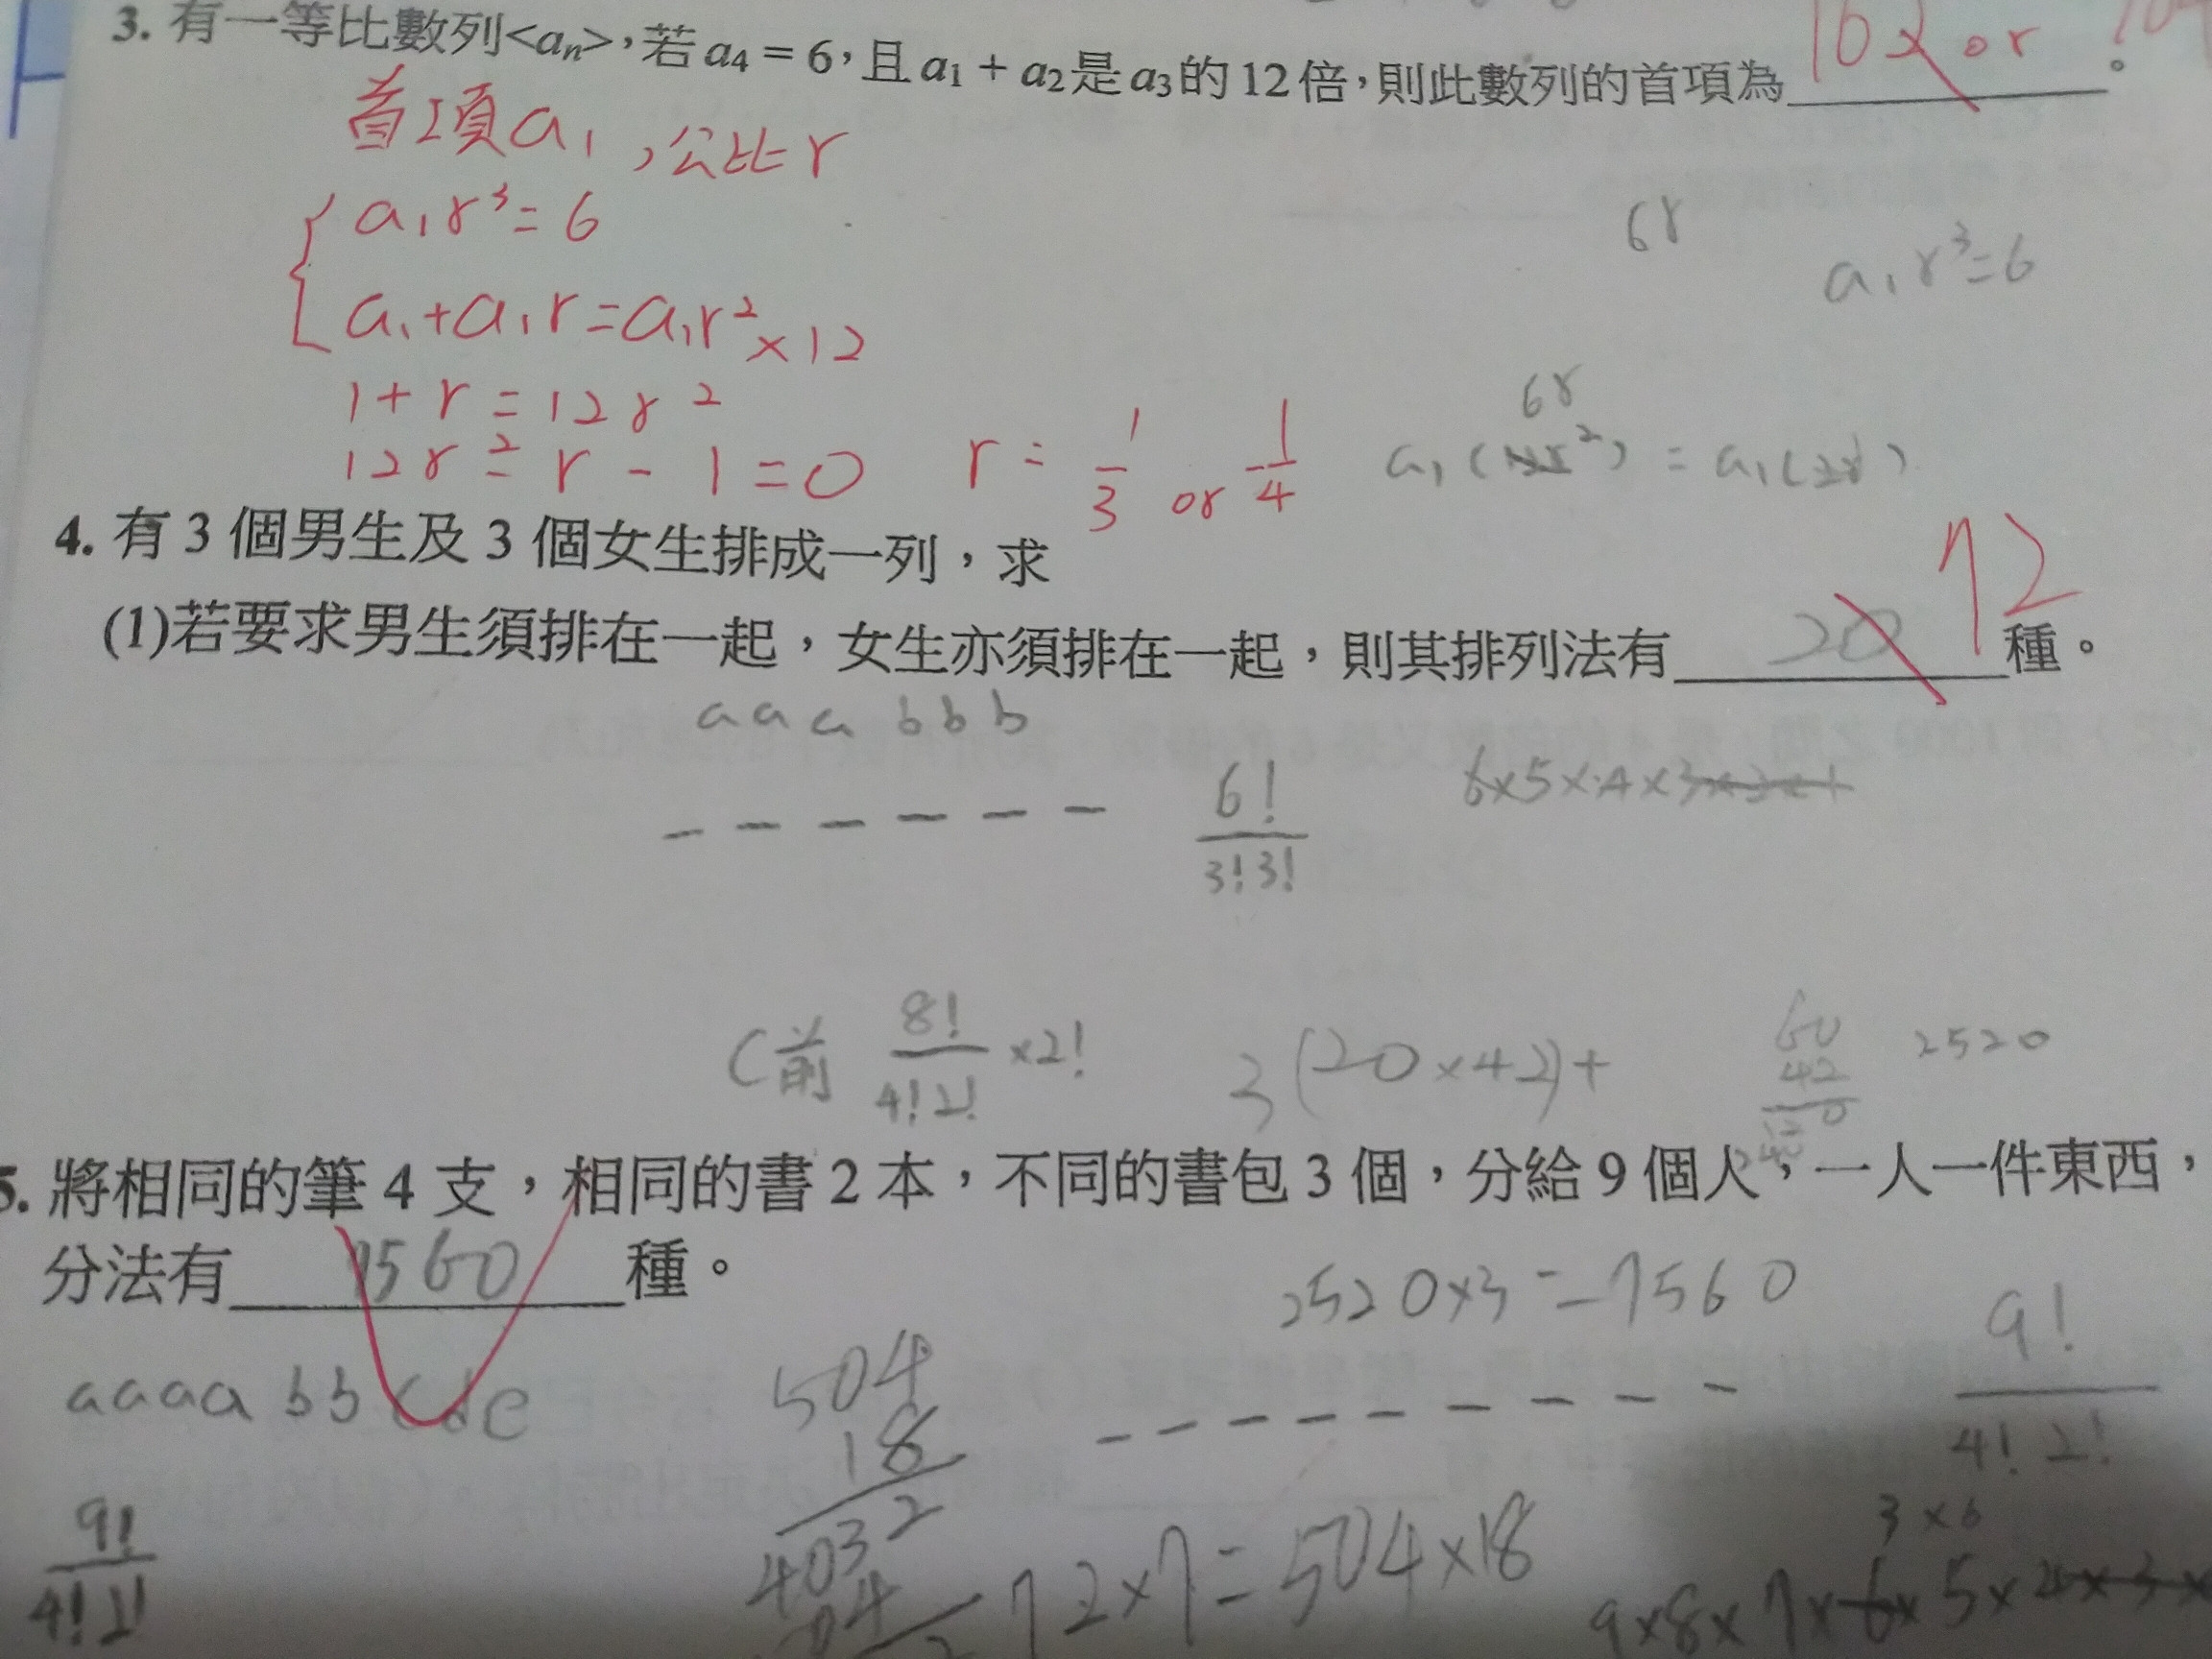 3. 有一等比數列<aₙ>，若 a₄ = 6，且 a₁ + a₂ 是 a₃ 的 12 倍，則此數列的首項為 162 or 。
首項 a₁ , 公比 r
a₁r³ = 6
a₁ + a₁r = a₁r² × 12
1 + r = 12r²
12r² - r - 1 = 0 r = 1/3 or -1/4
6r
a₁r³ = 6
6r
4. 有 3 個男生及 3 個女生排成一列，求
(1)若要求男生須排在一起，女生亦須排在一起，則其排列法有 20 72 種。
a a a b b b
_ _ _ _ _ _ 6!/3!3! 6×5×4×3×2×1
C前 8!/4!2! ×2! 3(20×42)+ 60 42 2520
5. 將相同的筆 4 支，相同的書 2 本，不同的書包 3 個，分給 9 個人，一人一件東西，
分法有 7560 種。
2520×3 = 7560
aaaa bb cde
504
18
4032
_ _ _ _ _ _ _ _ _ 9!/4!2!
9!/4!2!
72×7 = 504×18
3×6
9×8×7×6×5×4×3×